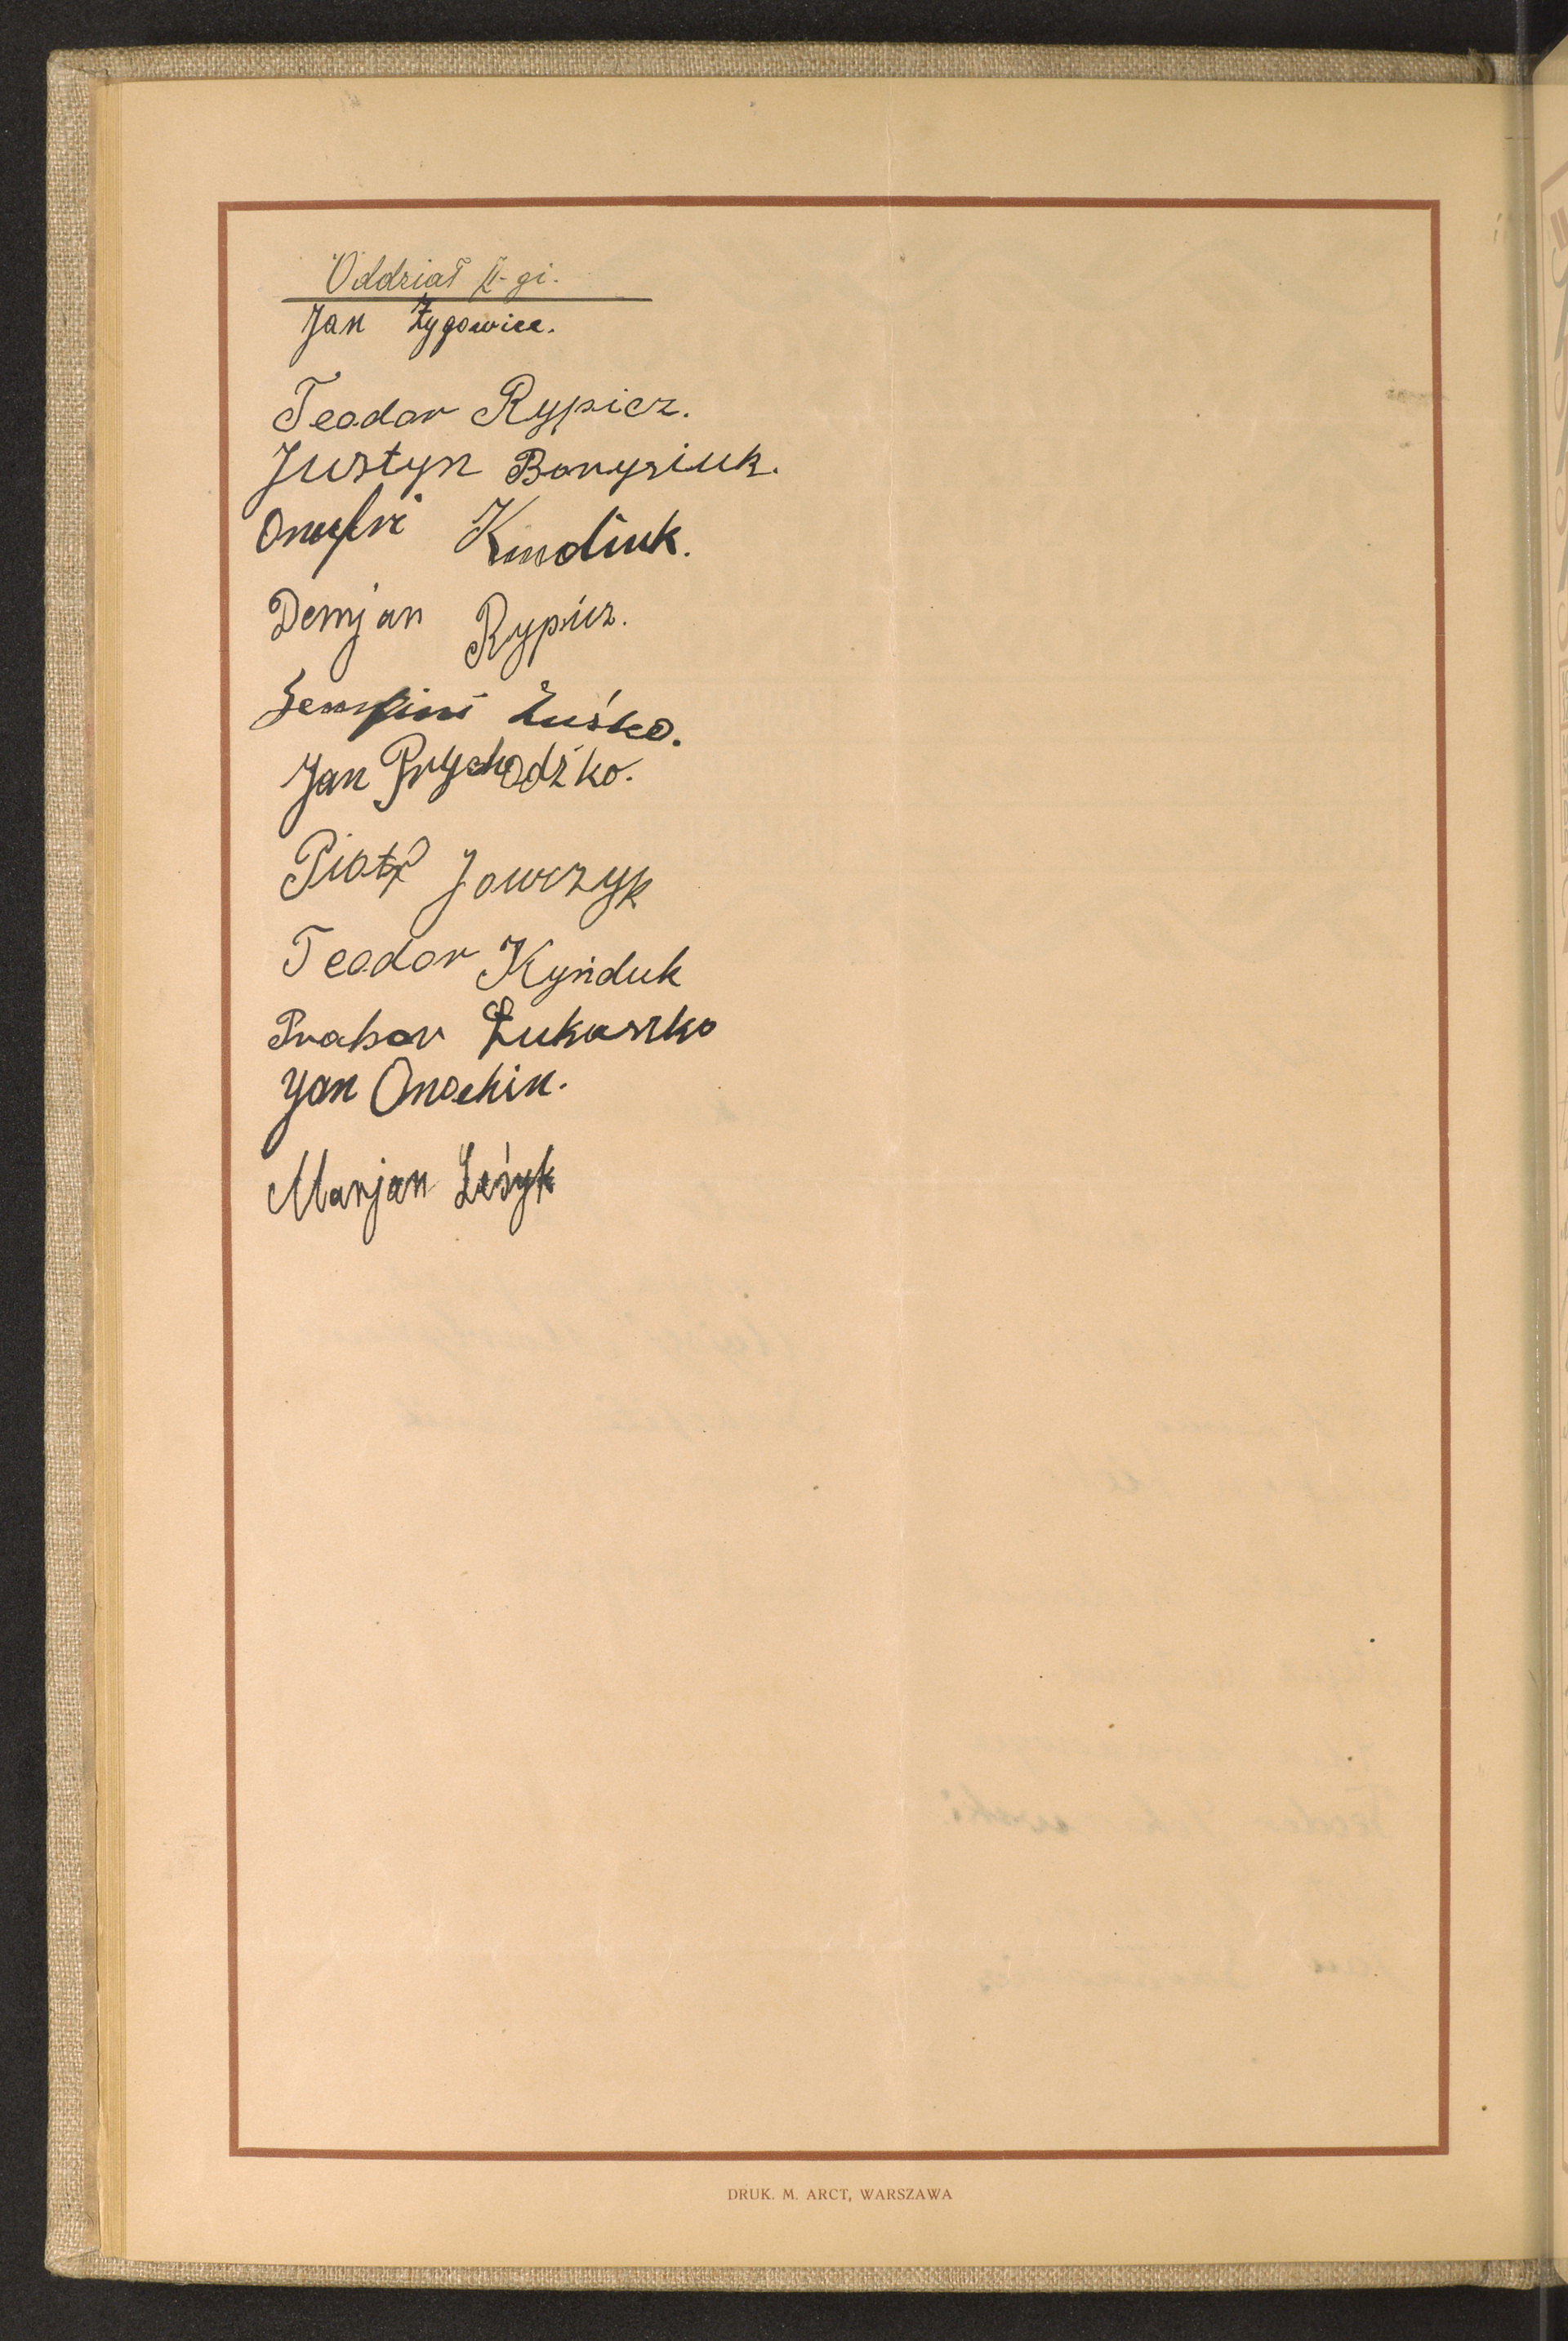 Oddział II-gi.
Jan Żygowiec.
Teodor Rypicz.
Justyn Borysiuk.
Onufri Kindiuk.
Demjan Rypicz.
Luśko.
Jan Prychodźko.
Piotr Jowczyk
Teodor Kyńduk
Prahor Łukaszko
Yan Onochin.
Marjan Leśyk
DRUK. M. ARCT, WARSZAWA